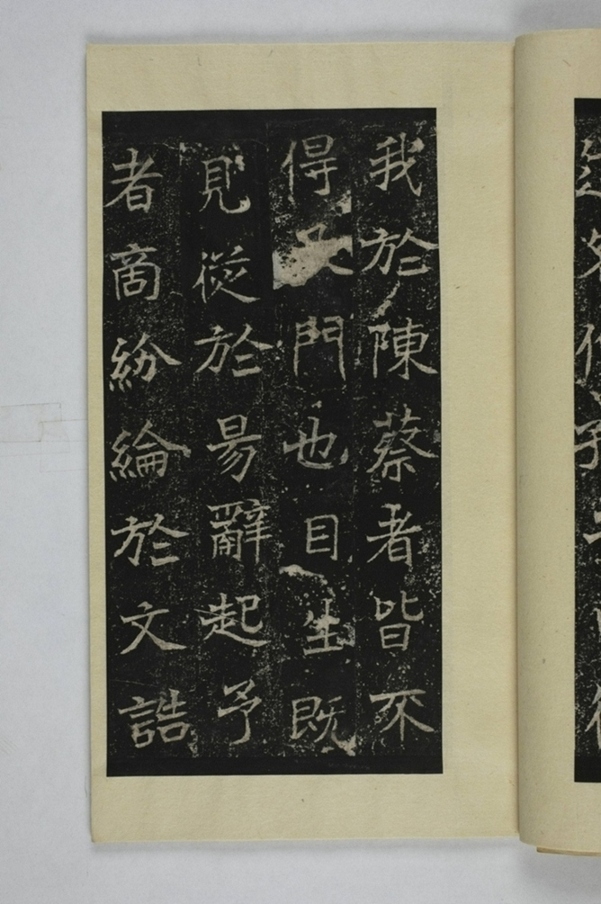 我於陳蔡者皆不
得及門也目生既
見從於昜辭起予
者啇紛綸於文誥